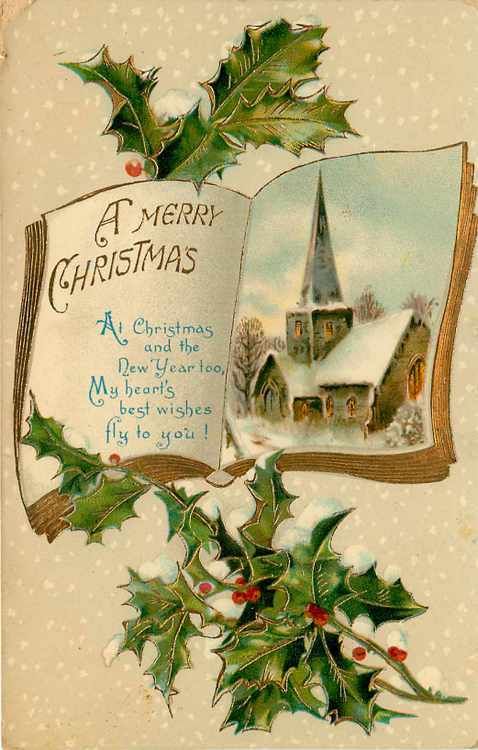 A MERRY
CHRISTMAS
At Christmas
and the
New Year too,
My heart's
best wishes
fly to you!